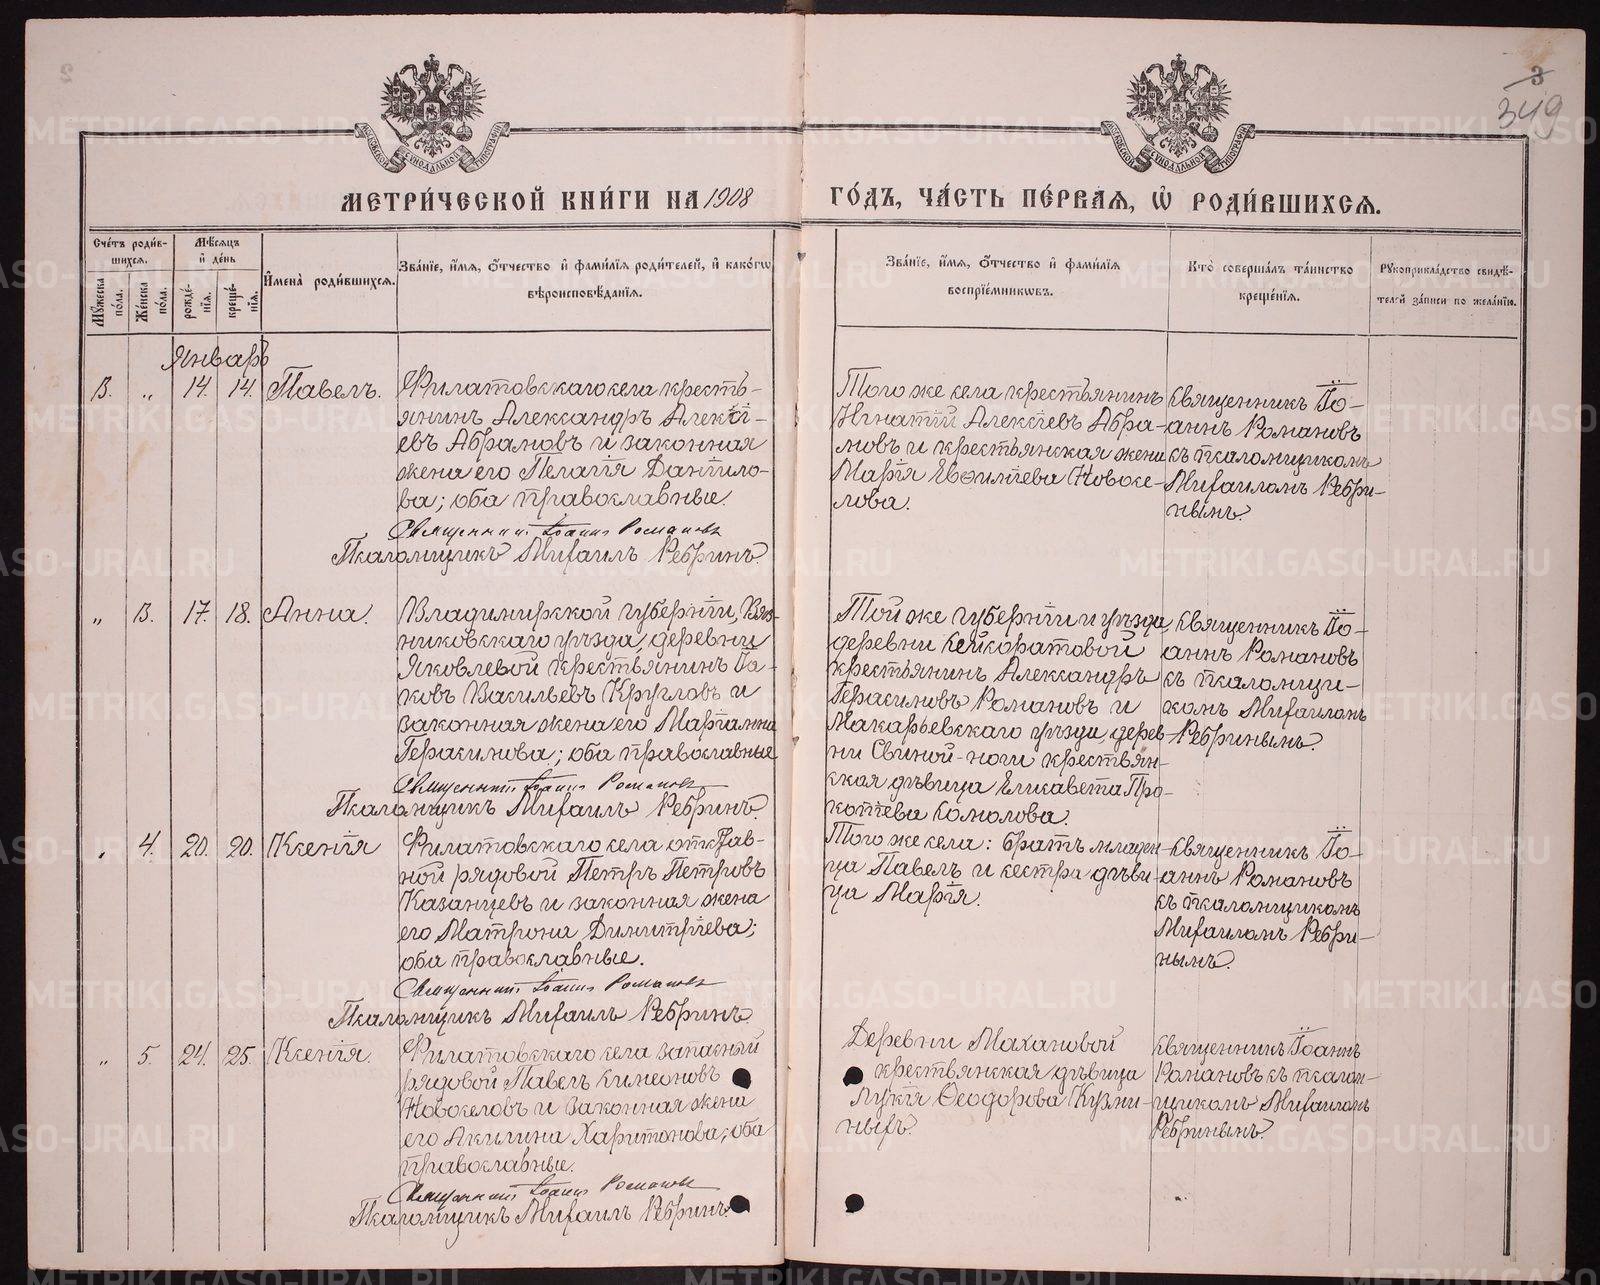 3
349
МЕТРИ́ЧЕСКОЙ КНИ́ГИ НА 1908 ГО́ДЪ, ЧА́СТЬ ПЕ́РВАЯ, Ѡ РОДИ́ВШИХСЯ.
Сче́тъ роди́в-
шихся.
Му́жеска по́ла.
Же́нска по́ла.
Мѣ́сяцъ
и де́нь
рожде́-
нія.
креще́-
нія.
Имена̀ роди́вшихся.
Зва́ніе, и́мя, о́тчество и фами́лія роди́телей, и како́гѡ
вѣроисповѣ́данія.
Зва́ніе, и́мя, о́тчество и фами́лія
воспріе́мникѡвъ.
Кто̀ соверша́лъ та́инство
креще́нія.
Рукоприкла́дство свидѣ́-
телей за́писи по жела́нію.
Январь
3. „ 14. 14. Павелъ.
Филатовскаго села кресть-
янинъ Александръ Алексі-
евъ Абрамовъ и законная
жена его Пелагія Даніило-
ва; оба православные.
Священникъ Іоаннъ Романовъ
Псаломщикъ Михаилъ Ребринъ.
Того же села крестьянинъ
Игнатій Алексіевъ Абра-
мовъ и крестьянская жена
Марія Евфиміева Новосе-
лова.
Священникъ Іо-
аннъ Романовъ
съ псаломщикомъ
Михаиломъ Ребри-
нымъ.
„ 3. 17. 18. Анна.
Владимірской губерніи, Вяз-
никовскаго уѣзда, деревни
Яковлевой крестьянинъ Іа-
ковъ Васильевъ Кругловъ и
законная жена его Маріамна
Герасимова; оба православные
Священникъ Іоаннъ Романовъ
Псаломщикъ Михаилъ Ребринъ.
Той же губерніи и уѣзда,
деревни Сейкоратовой
крестьянинъ Александръ
Герасимовъ Романовъ и
Макарьевскаго уѣзда, дерев-
ни Свиной-ноги крестьян-
ская дѣвица Елисавета Про-
копіева Сомолова.
Священникъ Іо-
аннъ Романовъ
съ псаломщи-
комъ Михаиломъ
Ребринымъ.
„ 4. 20. 20. Ксенія
Филатовскаго села отстав-
ной рядовой Петръ Петровъ
Казанцевъ и законная жена
его Матрона Димитріева;
оба православные.
Священникъ Іоаннъ Романовъ
Псаломщикъ Михаилъ Ребринъ.
Того же села: братъ младен-
ца Павелъ и сестра дѣви-
ца Марія.
Священникъ Іо-
аннъ Романовъ
съ псаломщикомъ
Михаиломъ Ребри-
нымъ.
„ 5. 24. 25. Ксенія.
Филатовскаго села запасный
рядовой Павелъ Симеоновъ
Новоселовъ и законная жена
его Акилина Харитонова; оба
православные.
Священникъ Іоаннъ Романовъ
Псаломщикъ Михаилъ Ребринъ.
Деревни Махановой
крестьянская дѣвица
Лукія Ѳеодорова Кузми-
ныхъ.
Священникъ Іоаннъ
Романовъ съ псалом-
щикомъ Михаиломъ
Ребринымъ.
METRIKI.GASO-URAL.RU